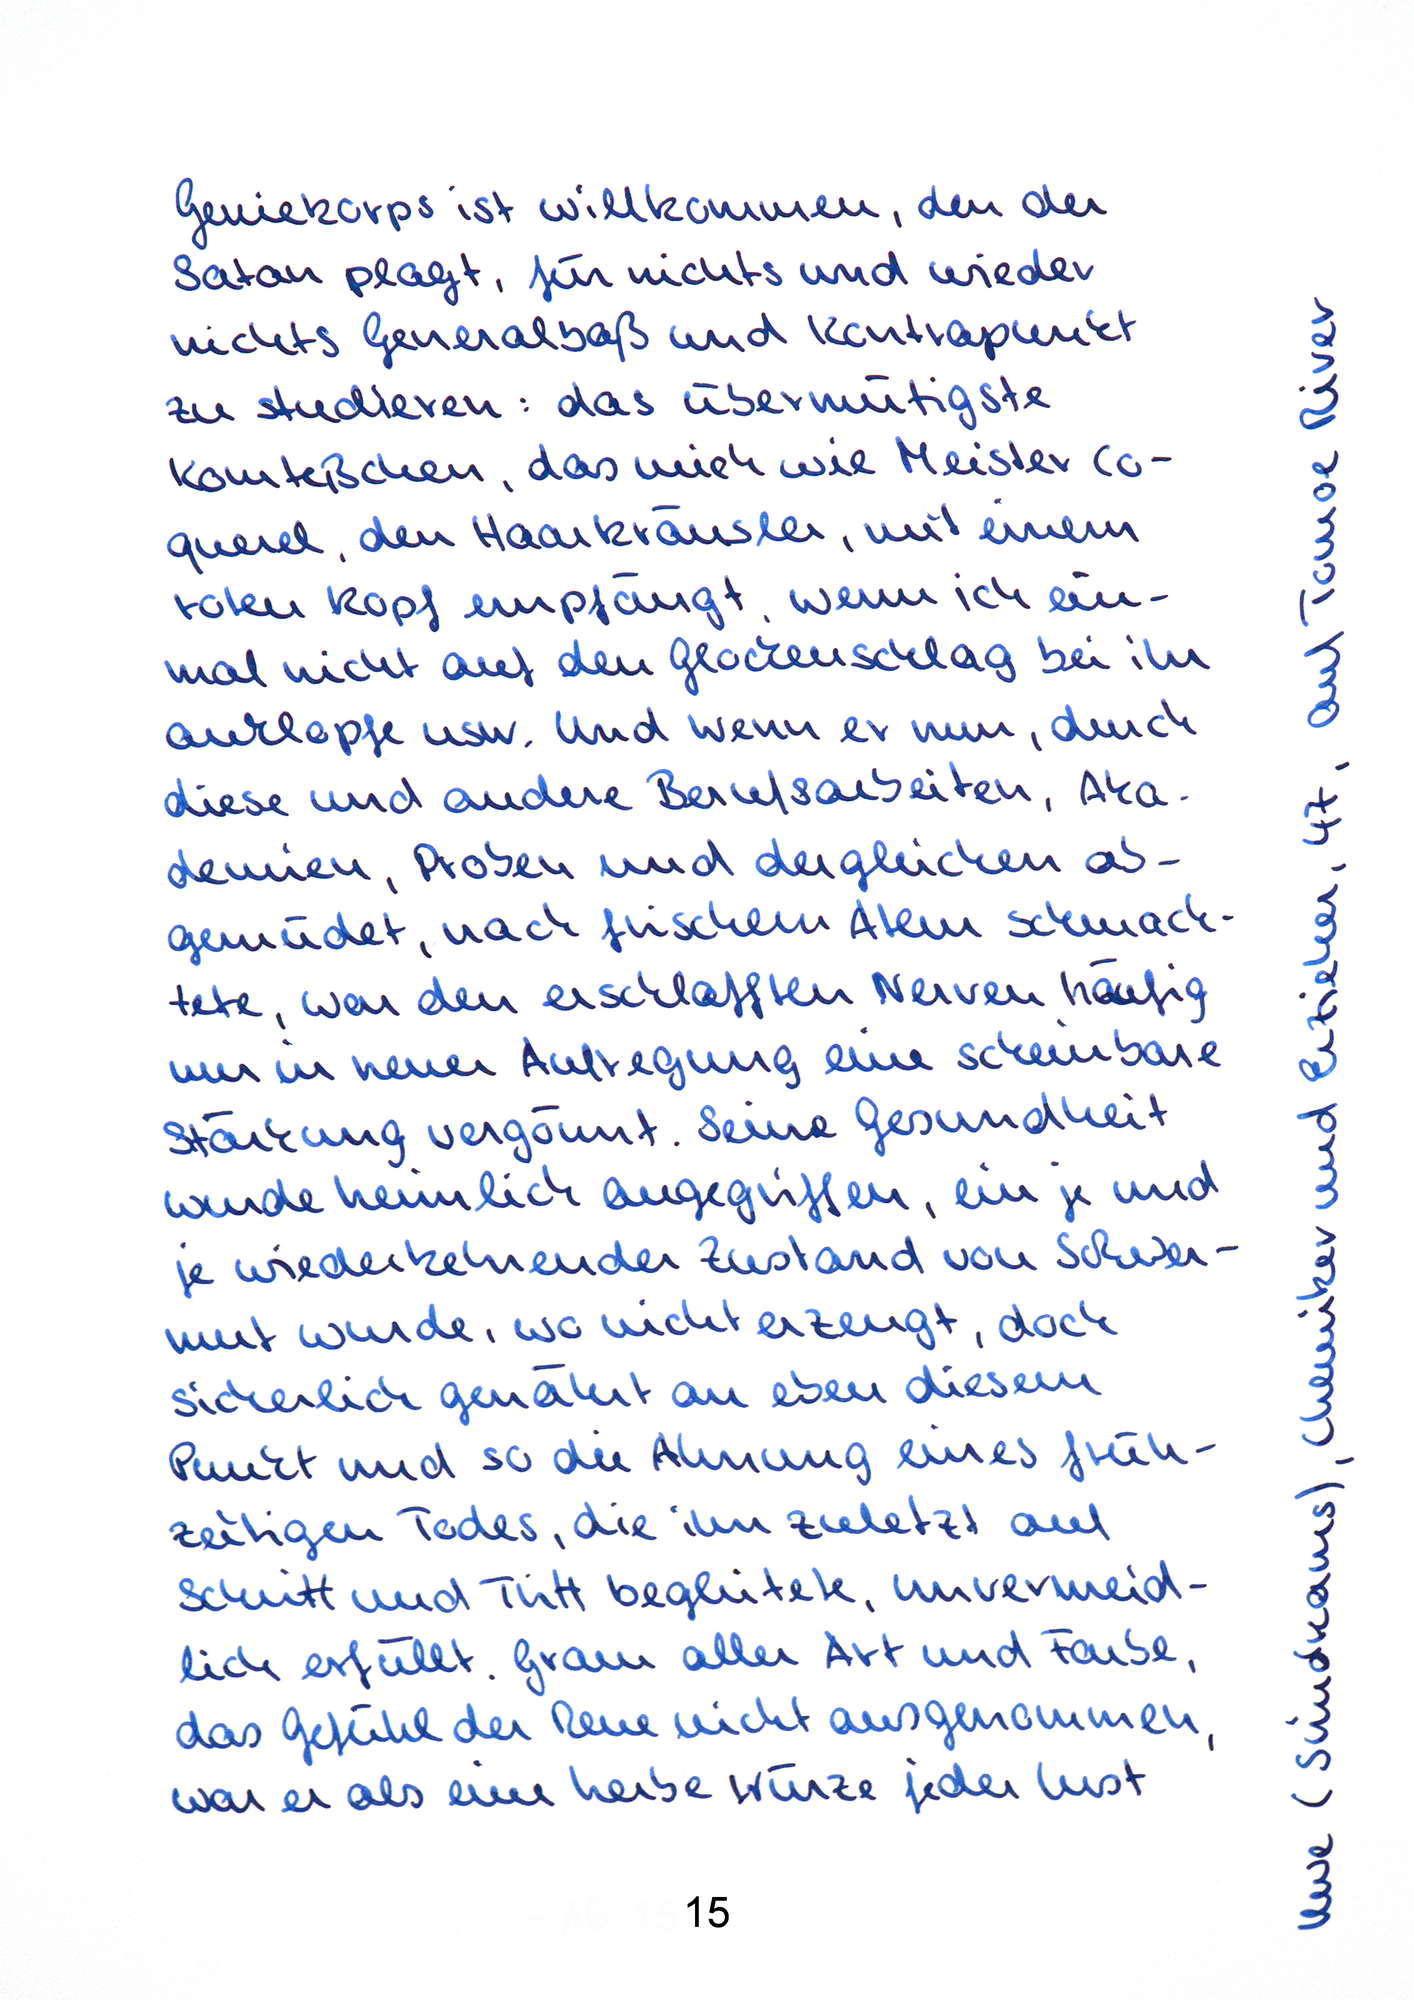 Geniekorps ist willkommen, den der
Satan plagt, für nichts und wieder
nichts Generalbaß und Kontrapunkt
zu studieren: das übermütigste
Komteßchen, das mich wie Meister Co-
querel, den Haarkräusler, mit einem
roten Kopf empfängt, wenn ich ein-
mal nicht auf den Glockenschlag bei ihr
anklopfe usw. Und wenn er nun, durch
diese und andere Berufsarbeiten, Aka-
demien, Proben und dergleichen ab-
gemüdet, nach frischem Atem schmach-
tete, war den erschlafften Nerven häufig
nur in neuer Aufregung eine scheinbare
Stärkung vergönnt. Seine Gesundheit
wurde heimlich angegriffen, ein je und
je wiederkehrender Zustand von Schwer-
mut wurde, wo nicht erzeugt, doch
sicherlich genährt an eben diesem
Punkt und so die Ahnung eines früh-
zeitigen Todes, die ihn zuletzt auf
Schritt und Tritt begleitete, unvermeid-
lich erfüllt. Gram aller Art und Farbe,
das Gefühl der Reue nicht ausgenommen,
war er als eine herbe Würze jeder Lust
15
Uwe (Sindkams), Chemiker und Erzieher, 47, auf Tonoe River